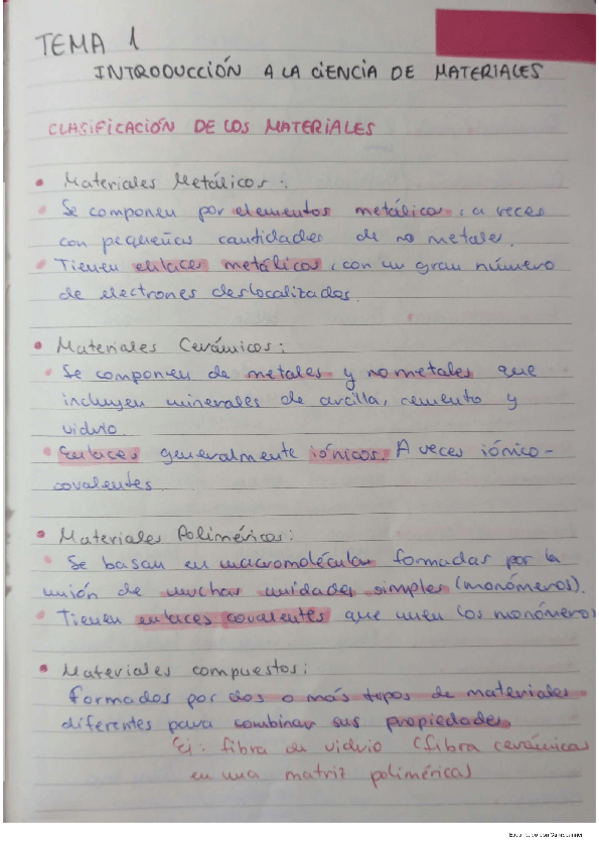 TEMA 1
INTRODUCCIÓN A LA CIENCIA DE MATERIALES
CLASIFICACIÓN DE LOS MATERIALES
• Materiales Metálicos:
• Se componen por elementos metálicos, a veces
con pequeñas cantidades de no metales.
• Tienen enlaces metálicos, con un gran número
de electrones deslocalizados.
• Materiales Cerámicos:
• Se componen de metales y no metales que
incluyen minerales de arcilla, cemento y
vidrio.
• Enlaces generalmente iónicos. A veces iónico-
covalentes.
• Materiales Poliméricos:
• Se basan en macromoléculas formadas por la
unión de muchas unidades simples (monómeros).
• Tienen enlaces covalentes que unen los monómeros
• Materiales compuestos:
formados por dos o más tipos de materiales
diferentes para combinar sus propiedades
Ej: fibra de vidrio (fibra cerámicas
en una matriz polimérica)